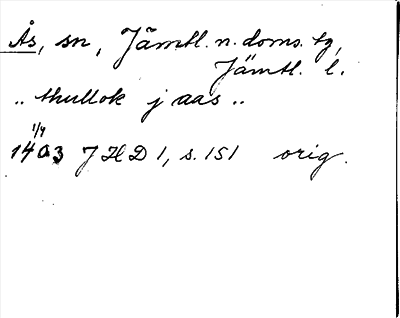 Ås, sn, Jämtl. n. doms. tg,
Jämtl. l.
.. thullok j aas ..
1/9
1403 JHD 1, s. 151 orig.